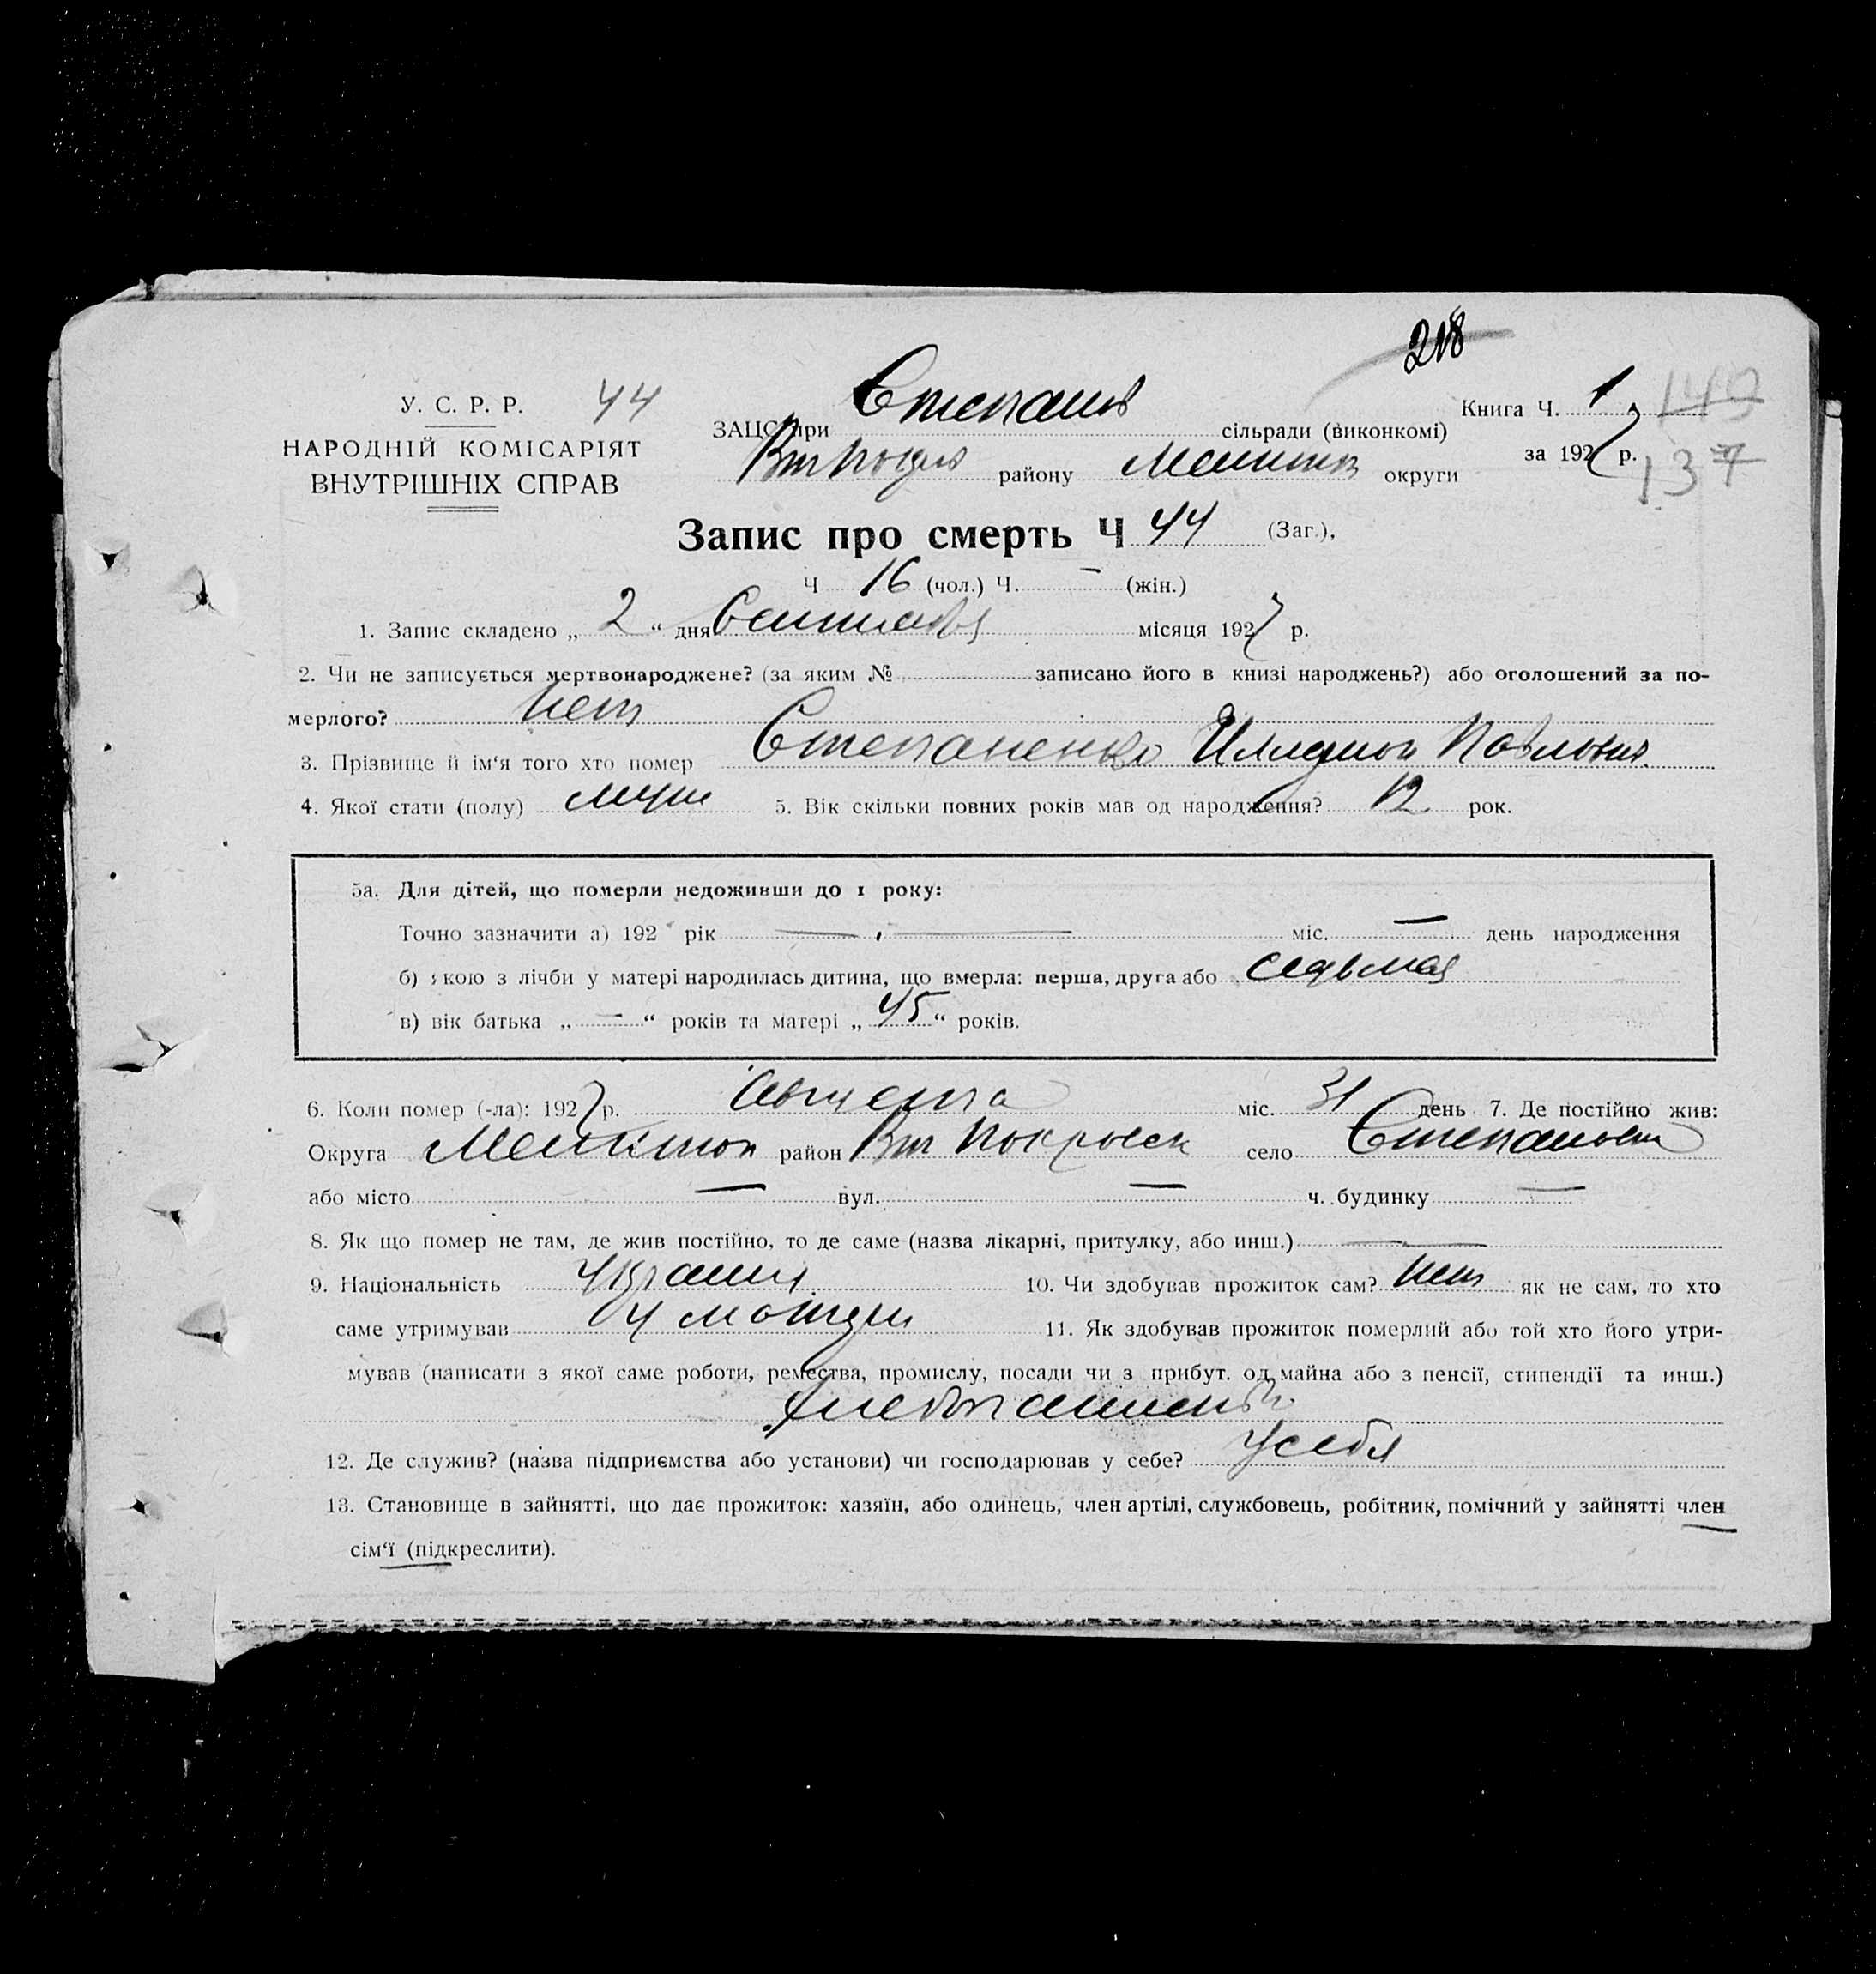 218
У. С. Р. Р. 44
НАРОДНІЙ КОМІСАРІЯТ
ВНУТРІШНІХ СПРАВ
ЗАЦС при Степанов сільради (виконкомі)
району Мелитоп округи
Книга Ч. 1 149
за 1927 р. 137
Запис про смерть Ч 44 (Заг.),
Ч 16 (чол.) Ч. — (жін.)
1. Запис складено „ 2 “ дня Сентября місяця 1927 р.
2. Чи не записується мертвонароджене? (за яким № записано його в книзі народжень?) або оголошений за по-
мерлого? нет
3. Прізвище й ім‘я того хто помер Степаненко Павлович.
4. Якої стати (полу) муж 5. Вік скільки повних років мав од народження? 12 рок.
5а. Для дітей, що померли недоживши до 1 року:
Точно зазначити а) 192 рік — — міс. — день народження
б) якою з лічби у матері народилась дитина, що вмерла: перша, друга або седьмая
в) вік батька „ — “ років та матері „ 45 “ років.
6. Коли помер (-ла): 1927 р. Августа міс. 31 день 7. Де постійно жив:
Округа Мелитоп район Вт Покровск село Степановк
або місто — вул. — ч. будинку —
8. Як що помер не там, де жив постійно, то де саме (назва лікарні, притулку, або инш.) — —
9. Національність Украинц 10. Чи здобував прожиток сам? нет як не сам, то хто
саме утримував у матери 11. Як здобував прожиток померлий або той хто його утри-
мував (написати з якої саме роботи, ремества, промислу, посади чи з прибут. од майна або з пенсії, стипендії та инш.)
хлебопашень
12. Де служив? (назва підприємства або установи) чи господарював у себе? у себя
13. Становище в зайнятті, що дає прожиток: хазяїн, або одинець, член артілі, службовець, робітник, помічний у зайнятті член
сім‘ї (підкреслити).